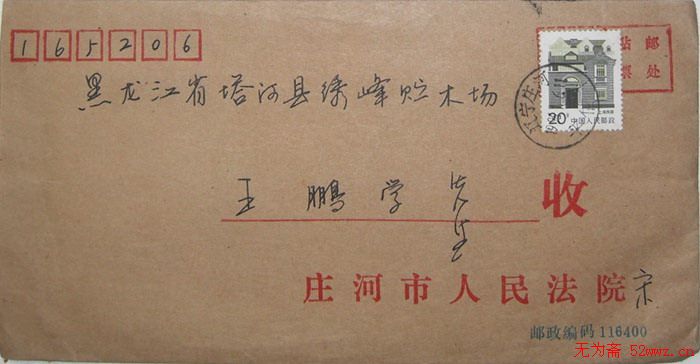 165206
贴邮
票处
20分
中国人民邮政
辽宁庄河
黑龙江省塔河县绣峰贮木场
王鹏学先生收
庄河市人民法院宋
邮政编码116400
无为斋 52wwz.cn